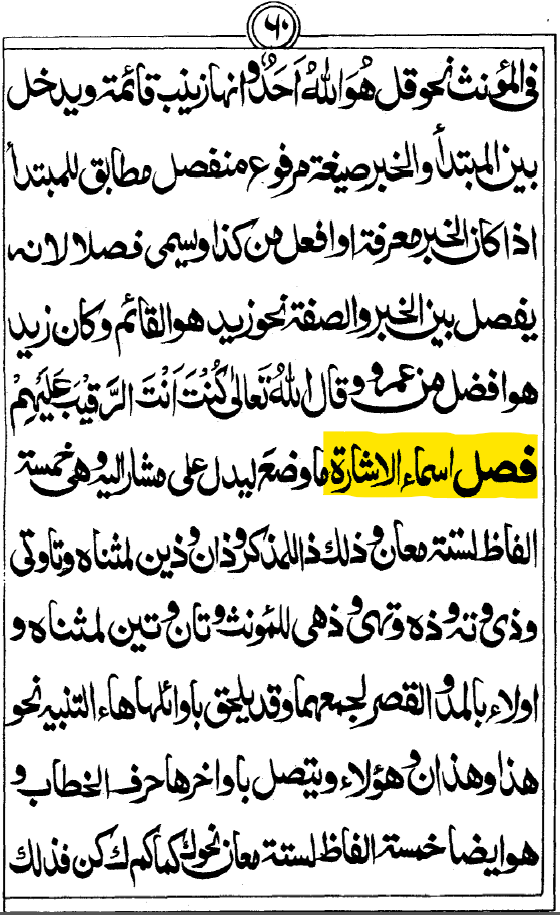 ٦٠
فى المؤنث نحو قل هُوَ اللهُ اَحَدٌ وانها زينب قائمة ويدخل
بين المبتدأ والخبر صيغة مرفوع منفصل مطابق للمبتدأ
اذا كان الخبر معرفة او افعل من كذا ويسمى فصلا لانه
يفصل بين الخبر والصفة نحو زيد هو القائم وكان زيد
هو افضل من عمرو وقال اللهُ تَعَالٰى كُنْتَ اَنْتَ الرَّقِيْبَ عَلَيْهِمْ
فصل اسماء الاشارة ما وضع ليدل على مشار اليه وهى خمسة
الفاظ لستة معان وذلك ذا للمذكر وذان وذين لمثناه وتا وتى
وذى وته وذه وتهى وذهى للمؤنث وتان وتين لمثناه و
اولاء بالمد والقصر لجمعهما وقد يلحق باوائلها هاء التنبيه نحو
هذا وهذان وهؤلاء ويتصل باواخرها حرف الخطاب و
هو ايضا خمسة الفاظ لستة معان نحو ك كما كم ك كن فذلك